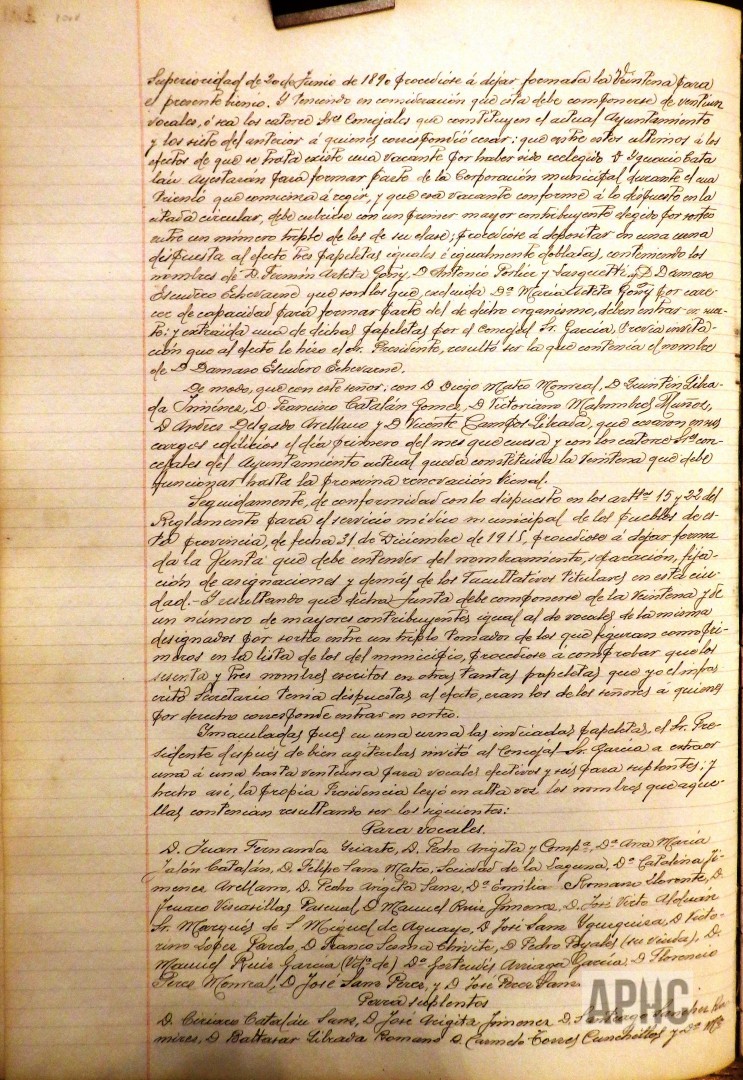 Superioridad de 20 de Junio de 1890 procediose á dejar formada la Veintena para
el presente bienio. Y teniendo en consideración que esta debe componerse de ventiun
vocales, ó sea los catorce Sres Concejales que constituyen el actual Ayuntamiento
y los siete del anterior á quienes correspondió cesar: que entre estos ultimos á los
efectos de que se trata existe una vacante por haber sido reelegido D Ygnacio Cata
lán Ayestarán para formar parte de la Corporación municipal durante el cua
trienio que comienza á regir, y que esa vacante conforme á lo dispuesto en la
citada circular, debe cubrirse con un primer mayor contribuyente elegido por sorteo
entre un número triple de los de su clase; procediose á depositar en una urna
dispuesta al efecto tres papeletas iguales é igualmente dobladas, conteniendo los
nombres de D. Fermín Arteta Goñy, D Antonio y D Damaso
Escudero Echevarne que son los que, excluida Dª María Arteta Goñy por care-
cer de capacidad para formar parte del de dicho organismo, deben entrar en sor-
teo: y extraida una de dichas papeletas por el Concejal Sr. Garcia, previa invita-
ción que al efecto le hizo el Sr. Presidente, resultó ser la que contenia el nombre
de D Damaso Escudero Echevarne.
De modo, que con este señor; con D Diego Mateo Monreal, D Quintin Libra-
da Jiménez, D. Francisco Catalán Gomez, D Victoriano Malumbres Muñoz,
D Andres Delgado Arellano y D Vicente Campos Librada, que cesaron en sus
cargos edilicios el día primero del mes que cursa y con los catorce Sres con-
cejales del Ayuntamiento actual queda constituida la Veintena que debe
funcionar hasta la proxima renovación bienal.
Seguidamente, de conformidad con lo dispuesto en los artts 15 y 22 del
Reglamento para el servicio médico municipal de los pueblos de es-
ta provincia, de fecha 31 de Diciembre de 1915, procediose á dejar forma
da la Junta que debe entender del nombramiento, separación, fija-
ción de asignaciones y demás de los Facultativos titulares en esta ciu-
dad.- Y resultando que dicha Junta debe componerse de la Veintena y de
un número de mayores contribuyentes igual al de vocales de la misma
designados por sorteo entre un triplo tomados de los que figuran como pri-
meros en la lista de los del municipio, procediose á comprobar que los
sesenta y tres nombres escritos en otras tantas papeletas que yo el infras
crito Secretario tenia dispuestas al efecto, eran los de los señores á quienes
por derecho corresponde entrar en sorteo.
Inmaculadas pues en una urna las indicadas papeletas, el Sr. Pre-
sidente después de bien agitarlas invitó al Concejal Sr. García a extraer
una á una hasta ventiuna para vocales efectivos y seis para suplentes; y
hecho así, la propia Presidencia leyó en alta voz los nombres que aque-
llas contenian resultando ser los siguientes:
Para vocales.
D. Juan Fernandez Yriarte, D. Pedro Arigita y Compª, Dª Ana María
Jalón Catalán, D. Felipe Sanz Mateo, Sociedad de la Laguna, Dª Catalina Ji-
menez Arellano, D. Pedro Arigita Sanz, Dª Emilia Romano Llorente, D.
Viscasillas Pascual, D Manuel Ruiz Jimenez, D. José Victo
Sr. Marqués de S Miguel de Aguayo, D José Sanz D Victo-
rino Lopez Pardo, D. Franco Sesma Chivite, D. Pedro (su viuda), D.
Manuel Ruiz García (Vdª de) Dª Gertrudis Arriaga García, D Florencio
Perez Monreal, D José Sanz Perez, y D José Perez Sanz
Para suplentes
D. Ciriaco Catalán Sanz, D. José Arigita Jimenez D. Santiago Sanchez Ra-
mirez, D Baltasar Librada Romano D. Carmelo Torres Cunchillos y Dª Mª
APHC